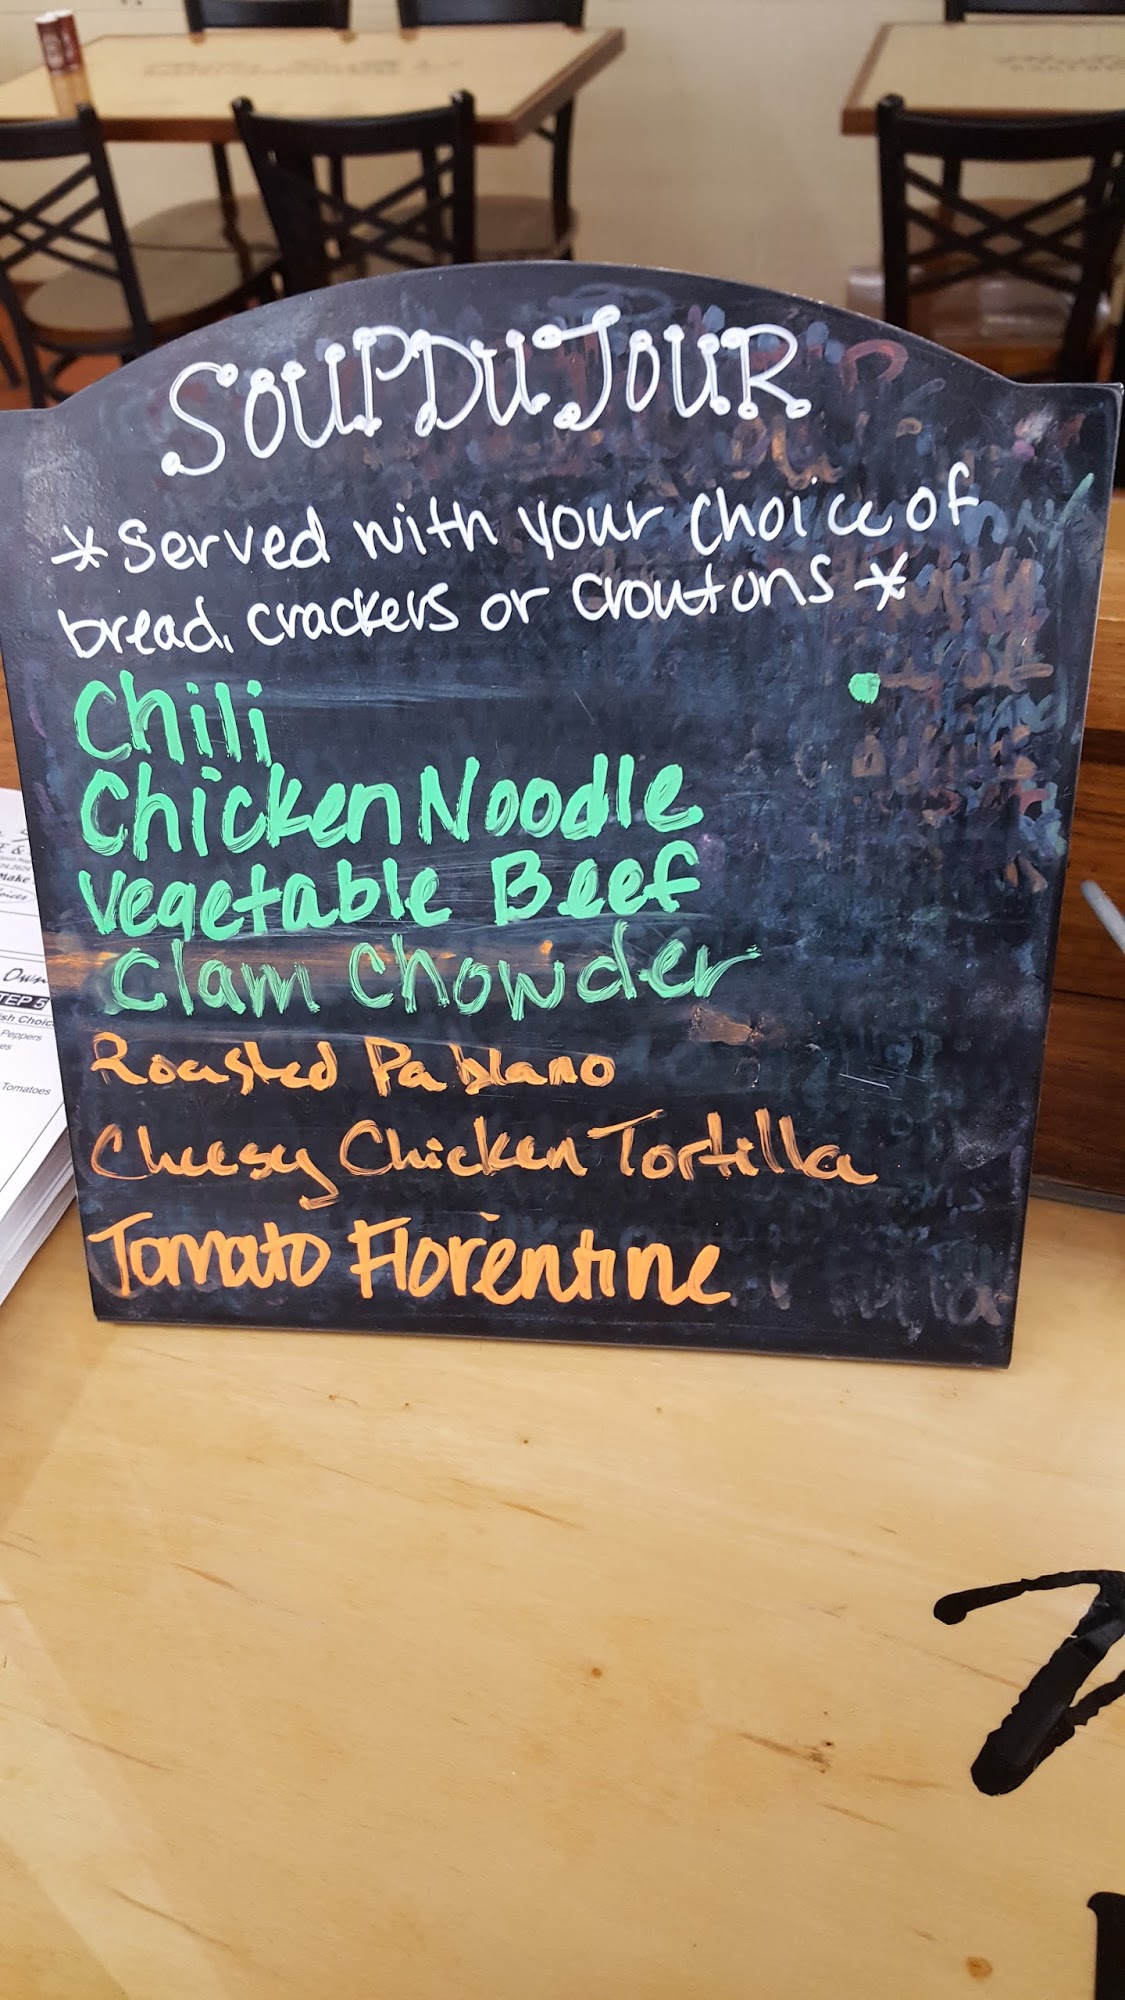 SOUP DU JOUR
*Served with your choice of
bread, crackers or croutons*
Chili
Chicken Noodle
Vegetable Beef
Clam Chowder
Roasted Pablano
Cheesy Chicken Tortilla
Tomato Florentine
Own
TEP 5
Peppers
Tomatoes